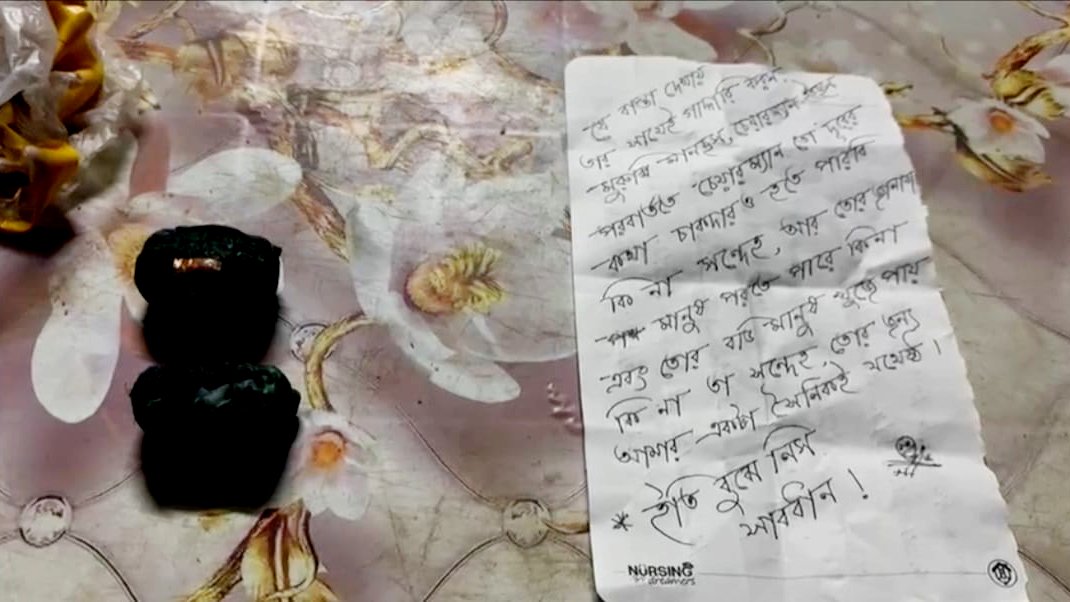 যে রাস্তা দেখায়
তার সাথেই গাদ্দারি করলি
মুরুব্বি মানছস, চেয়ারম্যান
পরবর্তিতে চেয়ারম্যান তো দূরের
কথা চাকদার ও হতে পারবি
কি না সন্দেহ, আর তোর জানাযা
মানুষ পরতে পারে কিনা
এবং তোর বডি মানুষ খুজে পায়
কি না তা সন্দেহ, তোর জন্য
আমার একটা সৈনিকই যথেষ্ঠ।
* ইতি বুঝে নিস
সাবধান !
NURSING
dreamers